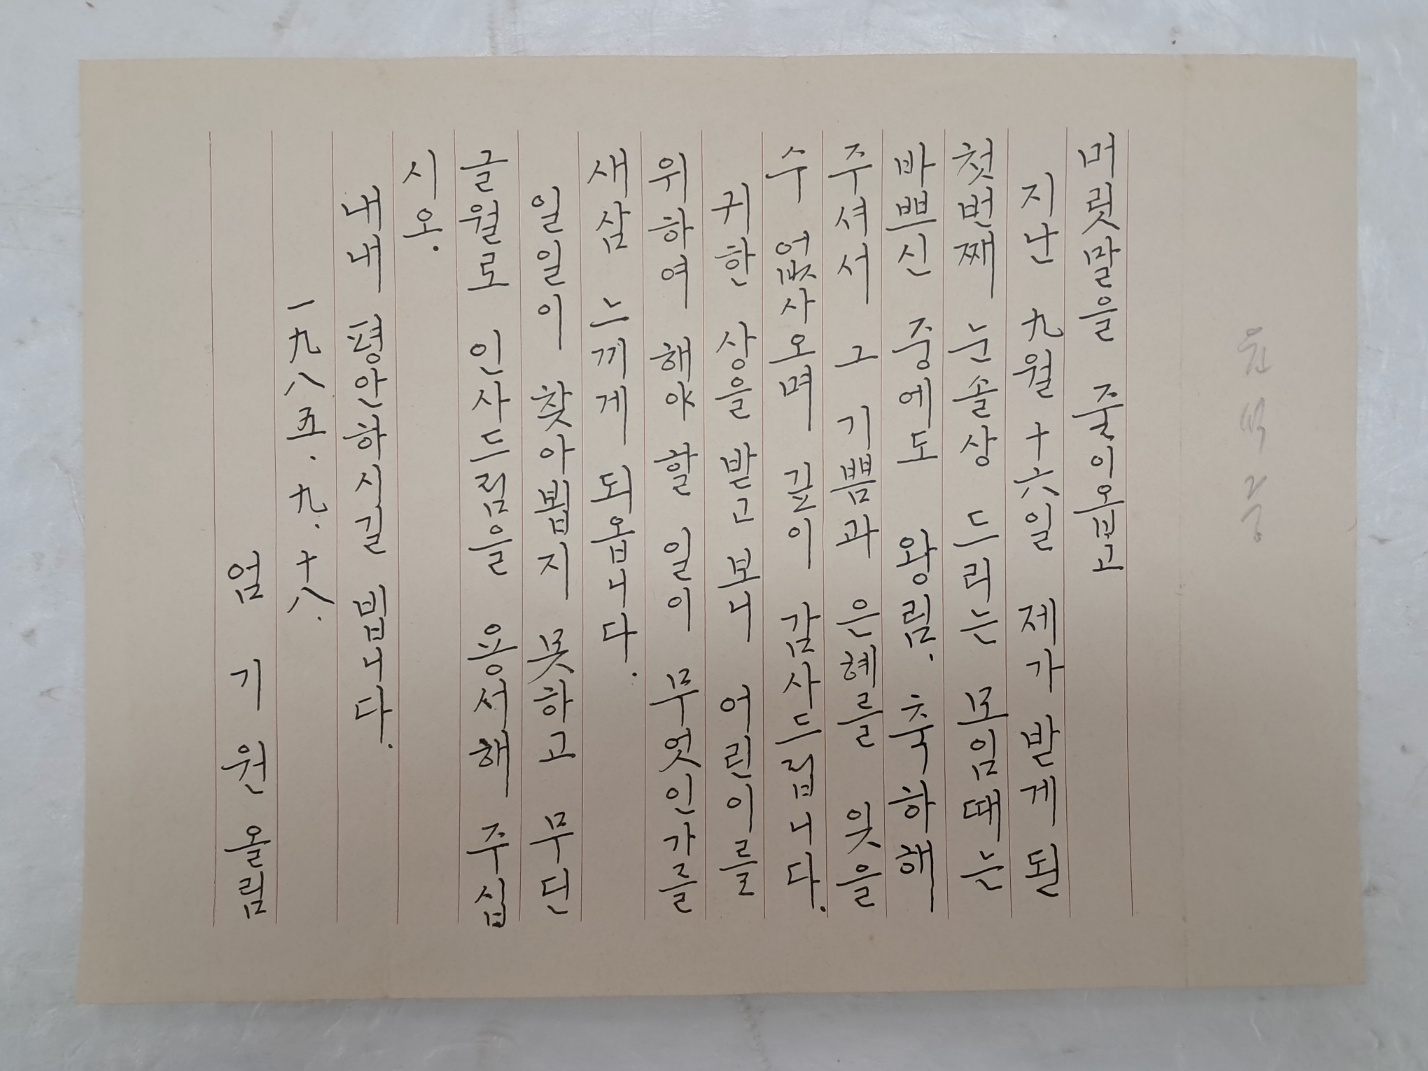 머릿말을 줄이옵고
지난 九월 十六일 제가 받게 된
첫번째 눈솔상 드리는 모임때는
바쁘신 중에도 왕림, 축하해
주셔서 그 기쁨과 은혜를 잊을
수 없사오며 깊이 감사드립니다.
귀한 상을 받고 보니 어린이를
위하여 해야 할 일이 무엇인가를
새삼 느끼게 되옵니다.
일일이 찾아뵙지 못하고 무딘
글월로 인사드림을 용서해 주십
시오.
내내 평안하시길 빕니다.
一九八五. 九. 十八.
엄 기 원 올림